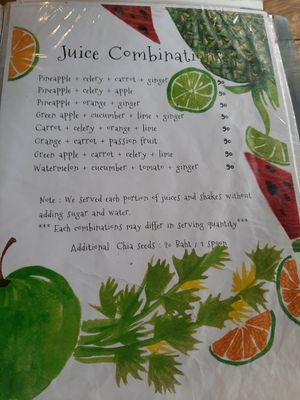 Juice Combinations
Pineapple + celery + carrot + ginger 90
Pineapple + celery + apple 90
Pineapple + orange + ginger 90
Green apple + cucumber + lime + ginger 90
Carrot + celery + orange + lime 90
Orange + carrot + passion fruit 90
Green apple + carrot + celery + lime 90
Watermelon + cucumber + tomato + ginger 90
Note : We served each portion of juices and shakes without
adding sugar and water.
*** Each combinations may differ in serving quantity***
Additional Chia Seeds : 20 Baht / 1 spoon